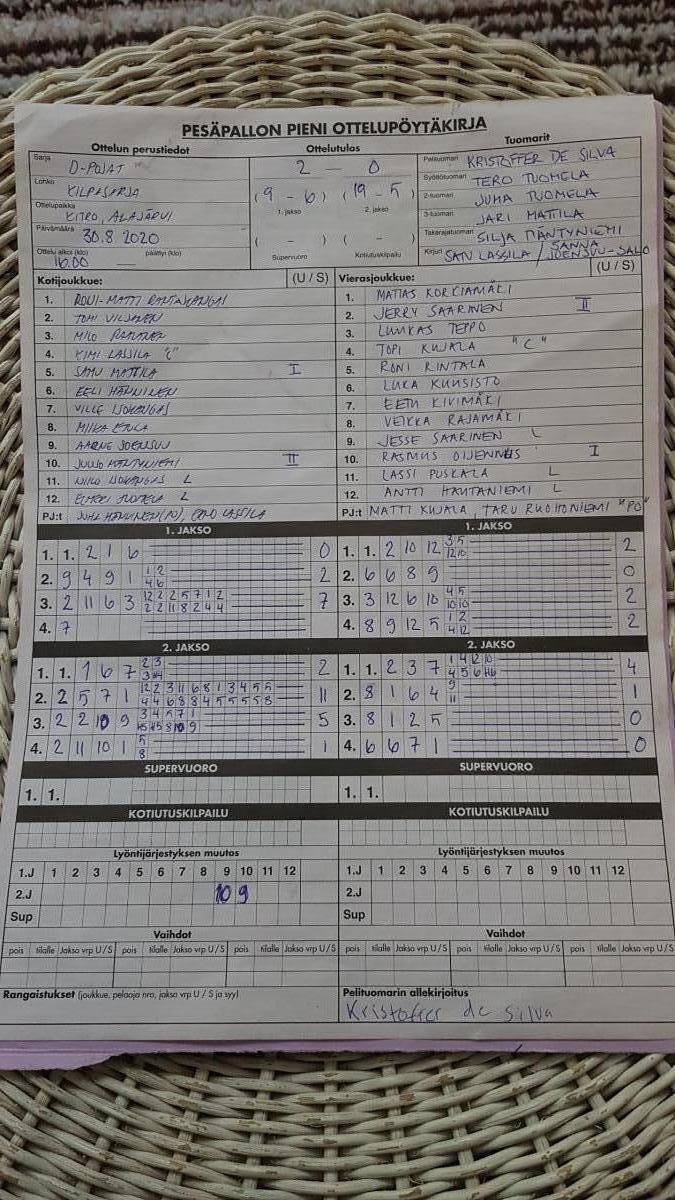 PESÄPALLON PIENI OTTELUPÖYTÄKIRJA
Ottelun perustiedot
Sarja D-POJAT
Lohko KILPASARJA
Ottelupaikka KITRO, ALAJÄRVI
Päivämäärä 30.8.2020
Ottelu alkoi (klo) päättyi (klo)
16.00
Ottelutulos
2 - 0
(9 - 6) (19 - 5)
1. jakso 2. jakso
( - ) ( - )
Supervuoro Kotiutuskilpailu
Tuomarit
Pelituomari KRISTOFFER DE SILVA
Syöttötuomari TERO TUOMELA
2-tuomari JUHA TUOMELA
3-tuomari JARI MATTILA
Takarajatuomari SILJA MÄNTYNIEMI
Kirjuri SATU LASSILA / SANNA JOENSUU-SALO
Kotijoukkue: (U / S)
1. RONI-MATTI RANTAKANGAS
2. TOMI VILJANEN
3. MILO
4. KIMI LASSILA "C"
5. SAMU MATTILA I
6. EELI HÄNNINEN
7. VILLE ISOKANGAS
8. MIIKA
9. AARNE JOENSUU
10. JUUSO MÄNTYNIEMI II
11. NIILO ISOKANGAS L
12. ELMERI TUOMELA L
PJ:t JUHA HÄNNINEN (PJ), EERO LASSILA
Vierasjoukkue: (U / S)
1. MATIAS KORKIAMÄKI
2. JERRY SAARINEN II
3. LUUKAS TEPPO
4. TOPI KUJALA "C"
5. RONI RINTALA
6. LUKA KUUSISTO
7. EETU KIVIMÄKI
8. VEIKKA RAJAMÄKI
9. JESSE SAARINEN L
10. RASMUS OIJENNUS I
11. LASSI PUSKALA L
12. ANTTI HAUTANIEMI L
PJ:t MATTI KUJALA, TARU RUOHONIEMI "PJ"
1. JAKSO
1. 1. 2 1 6 0
2. 9 4 9 1 1 2 2
4 6
3. 2 11 6 3 12 2 2 5 7 1 2 7
2 2 11 8 2 4 4
4. 7
1. JAKSO
1. 1. 2 10 12 3 5 2
12 10
2. 6 6 8 9 0
3. 3 12 6 10 4 5 2
10 10
4. 8 9 12 5 1 2 2
4 12
2. JAKSO
1. 1. 1 6 7 2 3 2
2. 2 5 7 1 12 2 3 11 6 8 1 3 4 5 5 11
4 4 6 8 8 4 5 5 5 5 8
3. 2 2 10 9 3 4 5 7 1 5
4. 2 11 10 1 5 1
8
2. JAKSO
1. 1. 2 3 7 1 4 12 10 4
2. 8 1 6 4 9 1
11
3. 8 1 2 5 0
4. 6 6 7 1 0
SUPERVUORO
1. 1.
SUPERVUORO
1. 1.
KOTIUTUSKILPAILU
KOTIUTUSKILPAILU
Lyöntijärjestyksen muutos
1.J 1 2 3 4 5 6 7 8 9 10 11 12
2.J 10 9
Sup
Lyöntijärjestyksen muutos
1.J 1 2 3 4 5 6 7 8 9 10 11 12
2.J
Sup
Vaihdot
pois tilalle Jakso vrp U / S pois tilalle Jakso vrp U / S pois tilalle Jakso vrp U / S
Vaihdot
pois tilalle Jakso vrp U / S pois tilalle Jakso vrp U / S pois tilalle Jakso vrp U / S
Rangaistukset (joukkue, pelaaja nro, jakso vrp U / S ja syy)
Pelituomarin allekirjoitus
Kristoffer de Silva